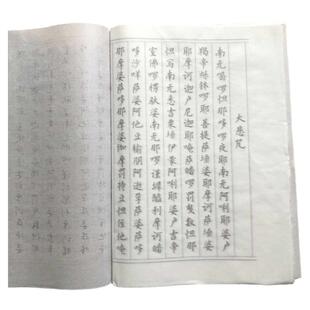 大悲咒
南无喝啰怛那哆啰夜耶南无阿唎耶婆卢
羯帝烁钵啰耶菩提萨埵婆耶摩诃萨埵婆
耶摩诃迦卢尼迦耶唵萨皤啰罚曳数怛那
怛写南无悉吉栗埵伊蒙阿唎耶婆卢吉帝
室佛啰楞驮婆南无那啰谨墀醯利摩诃皤
哆沙咩萨婆阿他豆输朋阿逝孕萨婆萨哆
那摩婆萨哆那摩婆伽摩罚特豆怛侄他唵